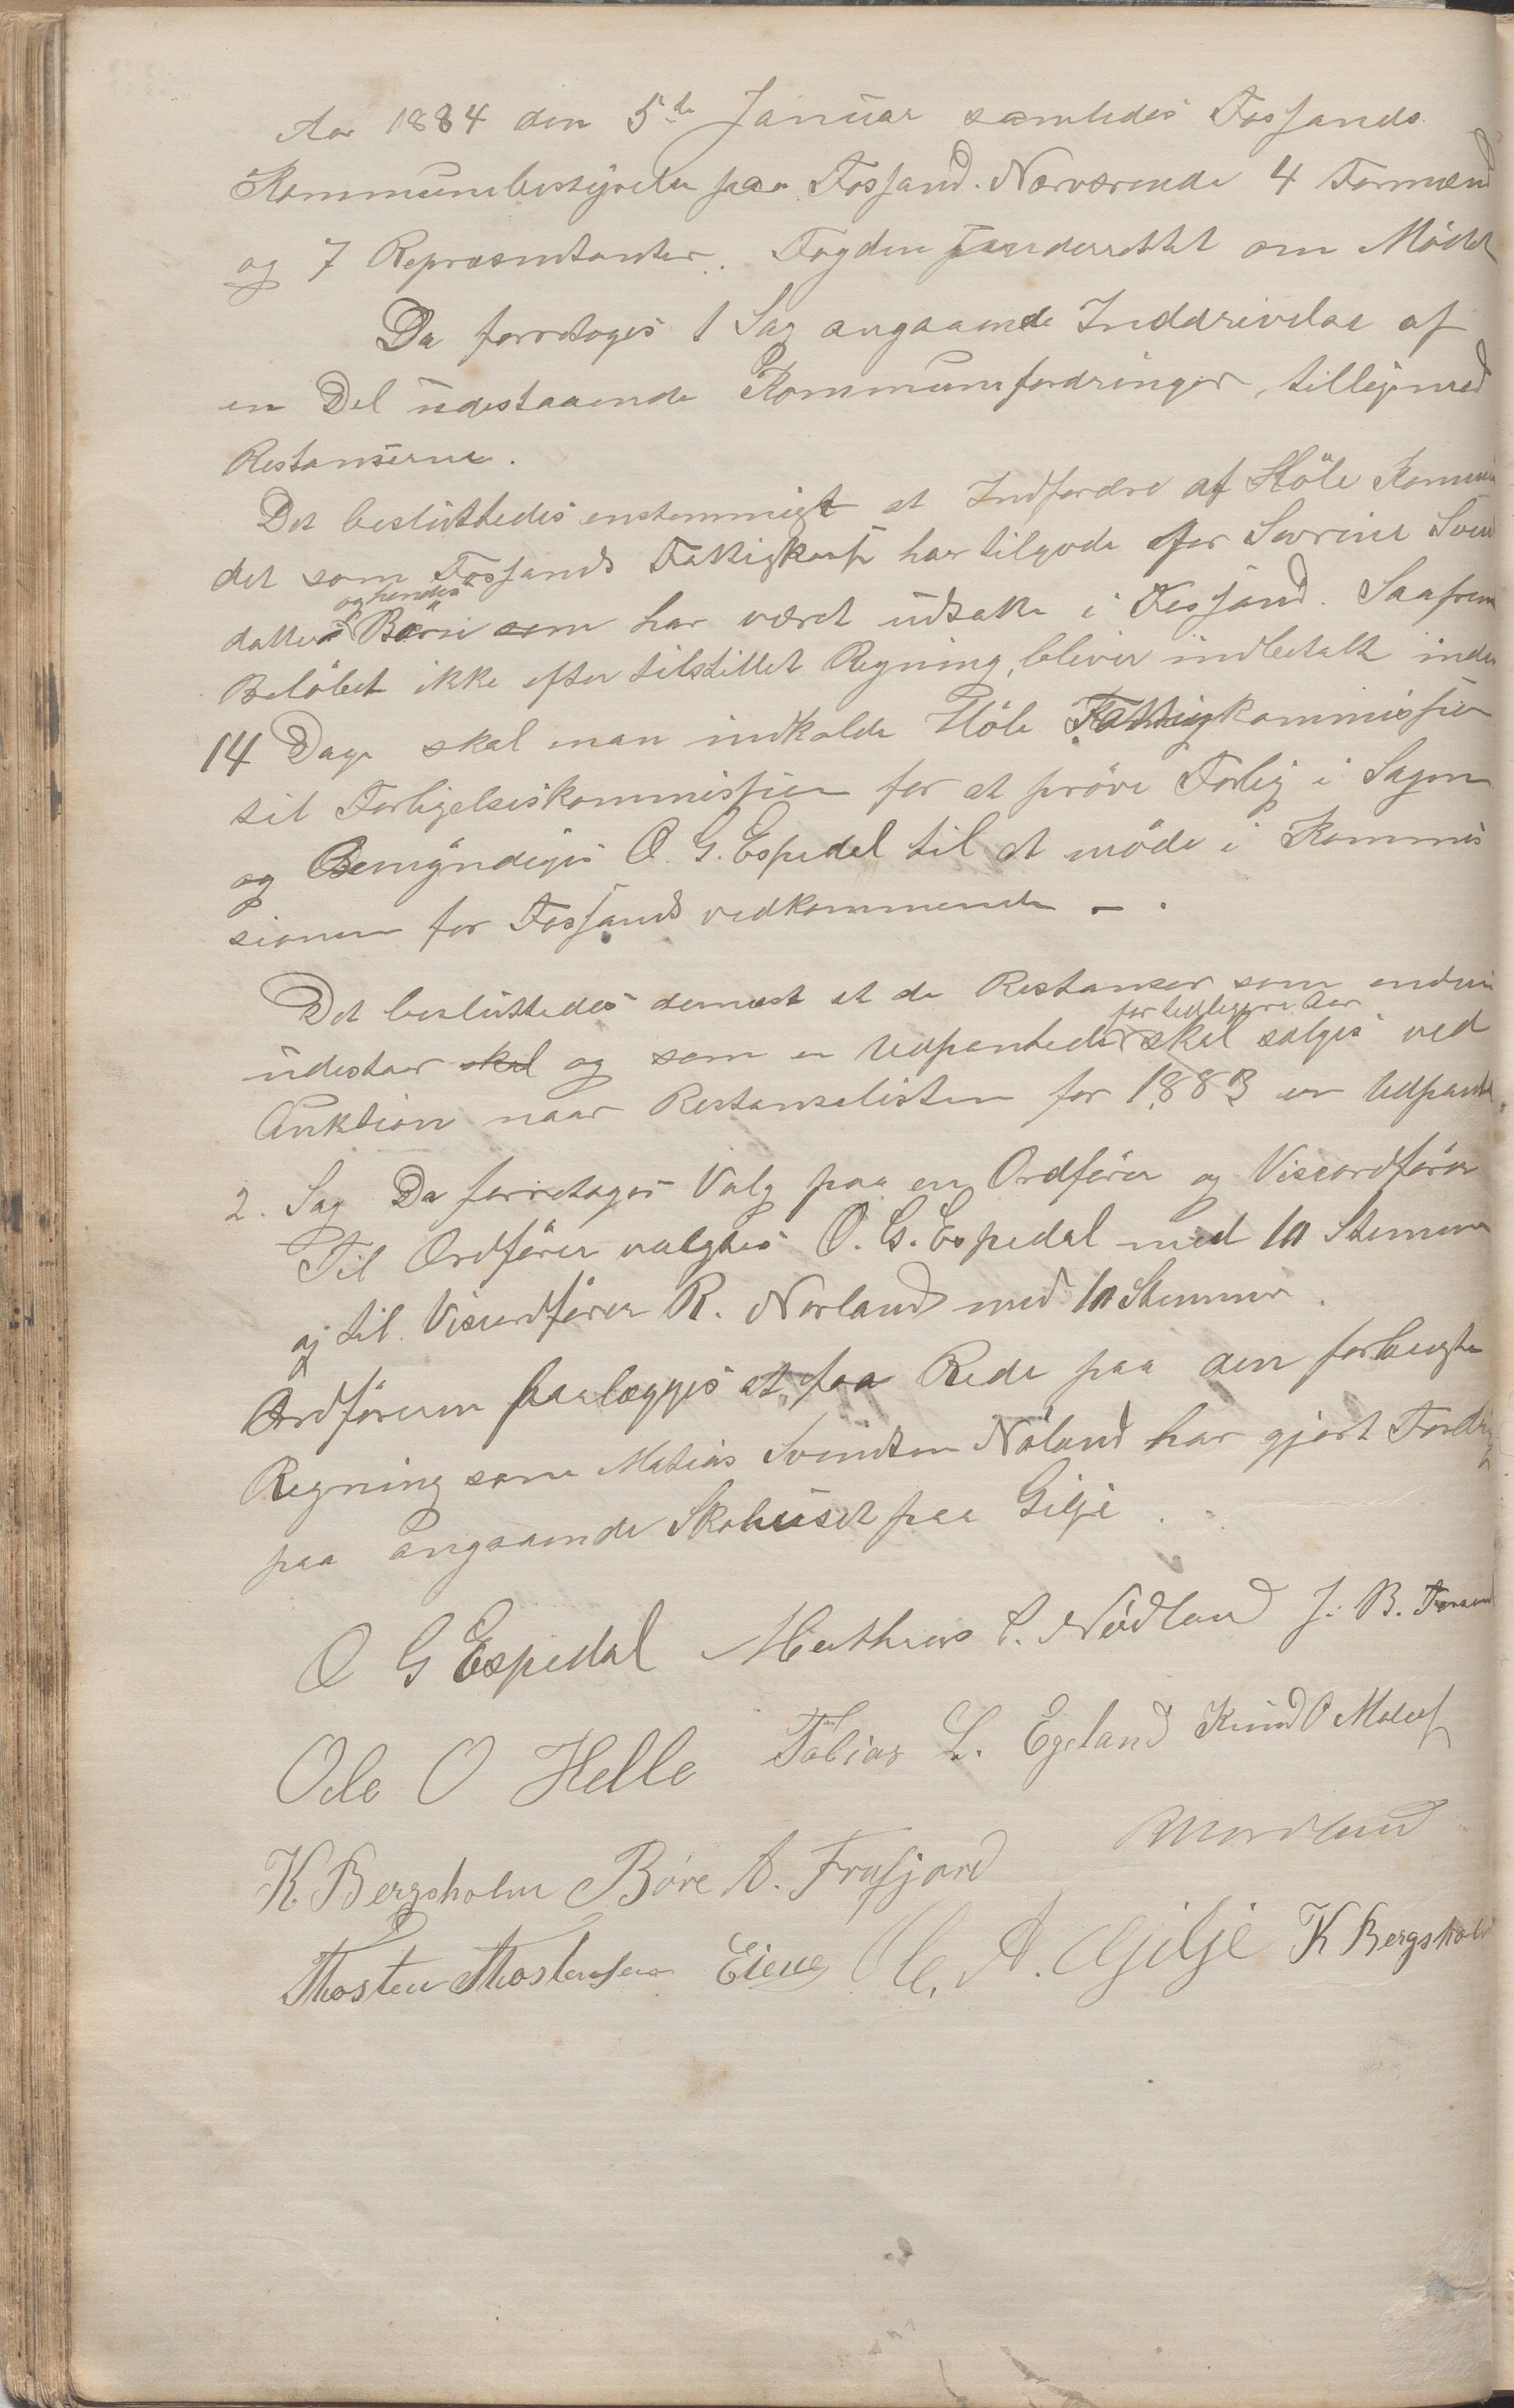 Aar 1884 den 5te Januar samledes Fossands
Kommunebestyrelse paa Fossand. Nærværende 4 Formænd
og 7 Repræsentanter. Fogden underrettet om Mödet
Da forretoges 1 Sag angaaende Inddrivelse af
en Del udestaaende Kommunefordringer, tilligemed
Restanserne.
Det besluttedes enstemmigt at Indfordre af Höle Kommune
det som Fossands Fattigkasse har tilgode for Sevrine Svend
og hendes
datters Børn som har været udsatte i Fossand. Saafremt
Belöbet ikke efter tilstillet Regning, bliver indbetalt inden
14 Dage skal man indkalde Höle Fattigkommission
til Forligelseskommission for at pröve Forlig i Sagen
og Bemyndiges O. G. Espedal til at möde i Kommis
sionen for Fossands vedkommende - .
Det besluttedes dernæst at de Restanser som endnu
for tidligere Aar
udestaar skal og som er Udpantede skal sælges ved
Auktion naar Restanselisten for 1883 er Udpantet
2. Sag Da forretoges Valg paa en Ordförer og Viseordförer
Til Ordförer valgtes O. G. Espedal med 10 Stemmer
og til Viseordförer R. Norland med 10 Stemmer.
Ordföreren paalægges at faa Rede paa den forlangte
Regning som Matias Svendsen Nöland har gjort Fordring
paa angaaende Skohuset paa Gilje.
O G Espedal Mathias S. Nödland J. B.
Ole O Helle Tobias L. Egeland Knud O Molauf
K Bergsholm Böre A. Frafjord RNordland
Thosten Thostensen Eiene Ole. A. Gjilje K Bergsholm